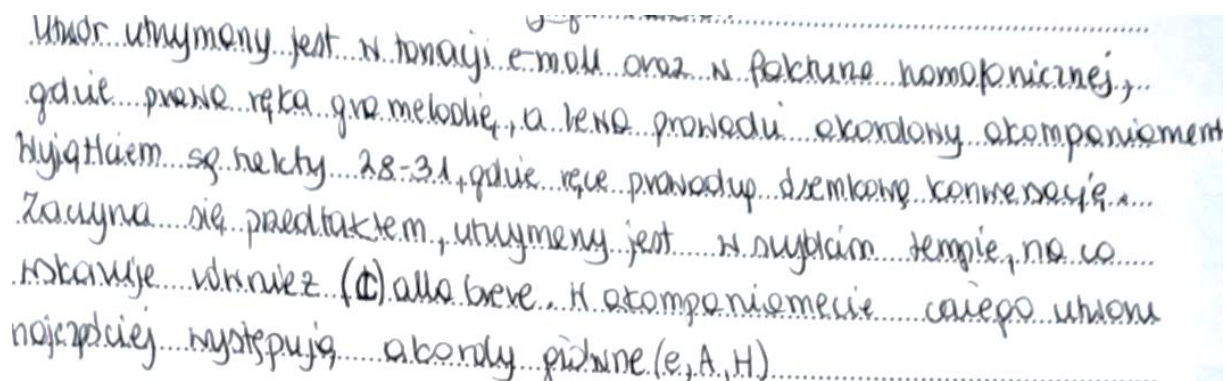 Utwór utrzymany jest w tonacji e-moll oraz w fakturze homofonicznej,
gdzie prawa ręka gra melodię, a lewa prowadzi akordowy akompaniament
Wyjątkiem są takty 28-31, gdzie ręce prowadzą ósemkową konwersację.
Zaczyna się przedtaktem, utrzymany jest w szybkim tempie, na co
wskazuje również (¢) alla breve. W akompaniamecie całego utworu
najczęściej występują akordy główne (e, A, H)